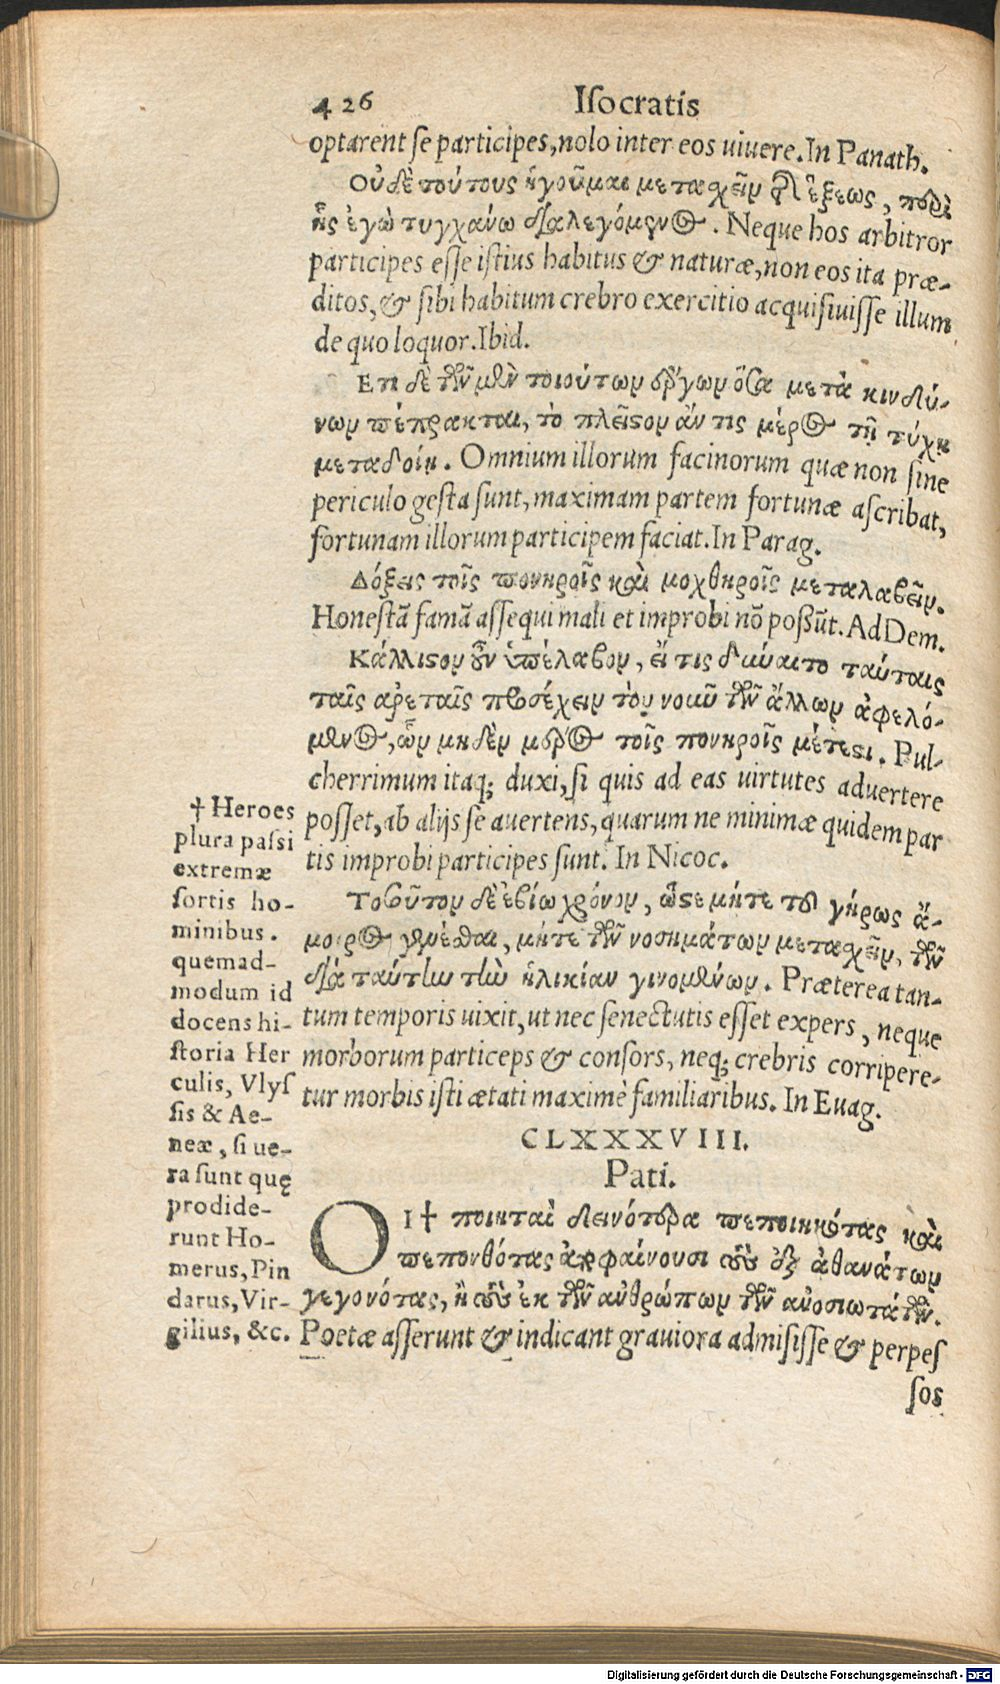 426 Iſocratis
optarent ſe participes, nolo inter eos uiuere. In Panath.
Οὐδὲ τούτους ἡγοῦμαι μετασχεῖν τῆς ἕξεως, περὶ
ἧς ἐγὼ τυγχάνω διαλεγόμενος. Neque hos arbitror
participes eſſe iſtius habitus & naturæ, non eos ita præ-
ditos, & ſibi habitum crebro exercitio acquiſiuiſſe illum
de quo loquor. Ibid.
Ετι δὲ τῶν μὲν τοιούτων ἔργων ὅσα μετὰ κινδύ-
νων πέπρακται, τὸ πλεῖστον ἄν τις μέρος τῇ τύχῃ
μεταδοίη. Omnium illorum facinorum quæ non ſine
periculo geſta ſunt, maximam partem fortunæ aſcribat,
fortunam illorum participem faciat. In Parag.
Δόξεις τοῖς πονηροῖς καὶ μοχθηροῖς μεταλαβεῖν.
Honeſtā famā aſſequi mali et improbi nō poſſūt. Ad Dem.
Κάλλιστον οὖν ὑπέλαβον, εἴ τις δύναιτο ταύταις
ταῖς ἀρεταῖς προσέχειν τὸν νοῦν τῶν ἄλλων ἀφελό-
μενος, ὧν μηδὲν μέρος τοῖς πονηροῖς μέτεστι. Pul-
cherrimum itaq; duxi, ſi quis ad eas uirtutes aduertere
poſſet, ab alijs ſe auertens, quarum ne minimæ quidem par
tis improbi participes ſunt. In Nicoc.
Τοσοῦτον δὲ ἐβίω χρόνον, ὥστε μήτε τοῦ γήρως ἄ-
μοιρος γενέσθαι, μήτε τῶν νοσημάτων μετασχεῖν, τῶν
διὰ ταύτην τὴν ἡλικίαν γινομένων. Præterea tan-
tum temporis uixit, ut nec ſenectutis eſſet expers, neque
morborum particeps & conſors, neq; crebris corripere-
tur morbis iſti ætati maximè familiaribus. In Euag.
CLXXXVIII.
Pati.
ΟΙ † ποιηταὶ δεινότερα πεποιηκότας καὶ
πεπονθότας ἀποφαίνουσι τοὺς ἐξ ἀθανάτων
γεγονότας, ἢ τοὺς ἐκ τῶν ἀνθρώπων τῶν ἀνοσιωτάτων.
Poetæ aſſerunt & indicant grauiora admiſiſſe & perpeſ
ſos
† Heroes
plura paſsi
extremæ
ſortis ho-
minibus.
quemad-
modum id
docens hi-
ſtoria Her
culis, Vlyſ
ſis & Ae-
neæ, ſi ue-
ra ſunt quę
prodide-
runt Ho-
merus, Pin
darus, Vir-
gilius, &c.
Digitalisierung gefördert durch die Deutsche Forschungsgemeinschaft - DFG